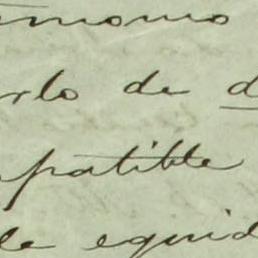 imonio
rlo de d
patible
de equid